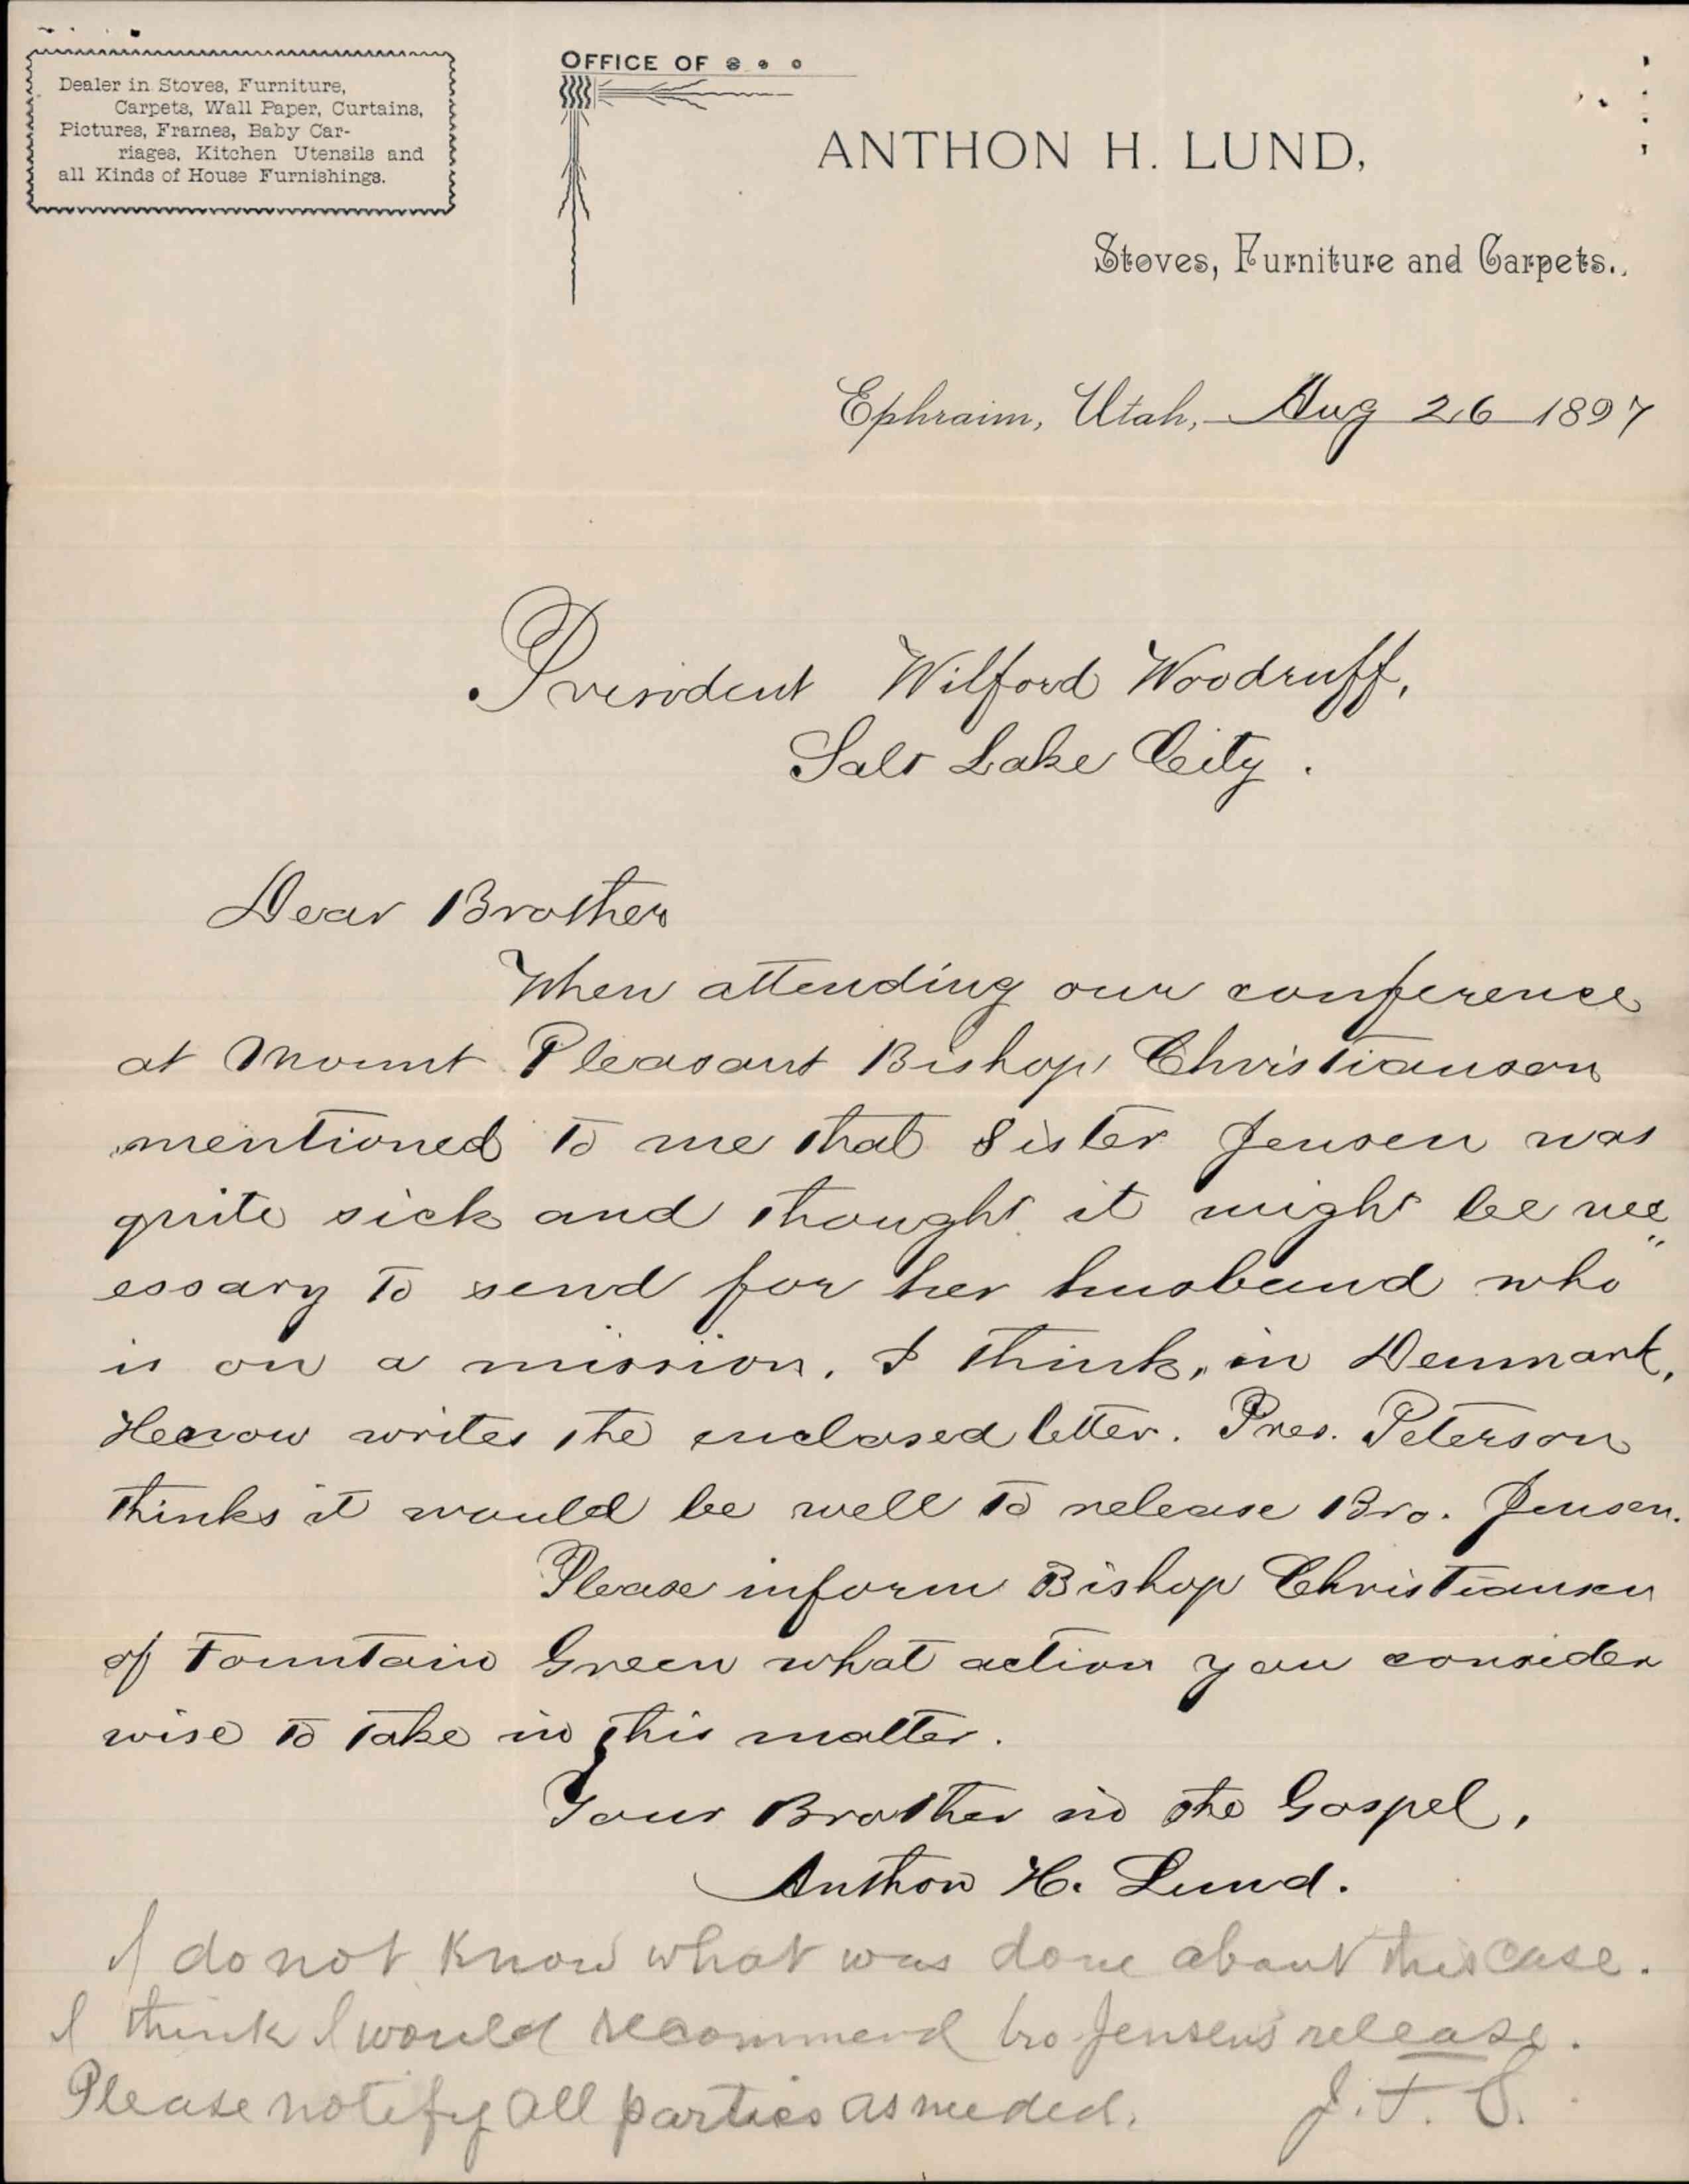 Dealer in Stoves, Furniture,
Carpets, Wall Paper, Curtains,
Pictures, Frames, Baby Car-
riages, Kitchen Utensils and
all Kinds of House Furnishings.
OFFICE OF
ANTHON H. LUND,
Stoves, Furniture and Carpets..
Ephraim, Utah, Aug 26 1897
President Wilford Woodruff,
Salt Lake City.
Dear Brother
When attending our conference
at Mount Pleasant Bishop Christianson
mentioned to me that Sister Jensen was
quite sick and thought it might be nec
essary to send for her husband who
is on a mission, I think, in Denmark.
He now writes the enclosed letter. Pres. Peterson
thinks it would be well to release Bro. Jensen.
Please inform Bishop Christiansen
of Fountain Green what action you consider
wise to take in this matter.
Your Brother in the Gospel,
Anthon H. Lund.
I do not know what was done about this case.
I think I would recommend bro Jensens release.
Please notify all parties as needed.
J. F. S.